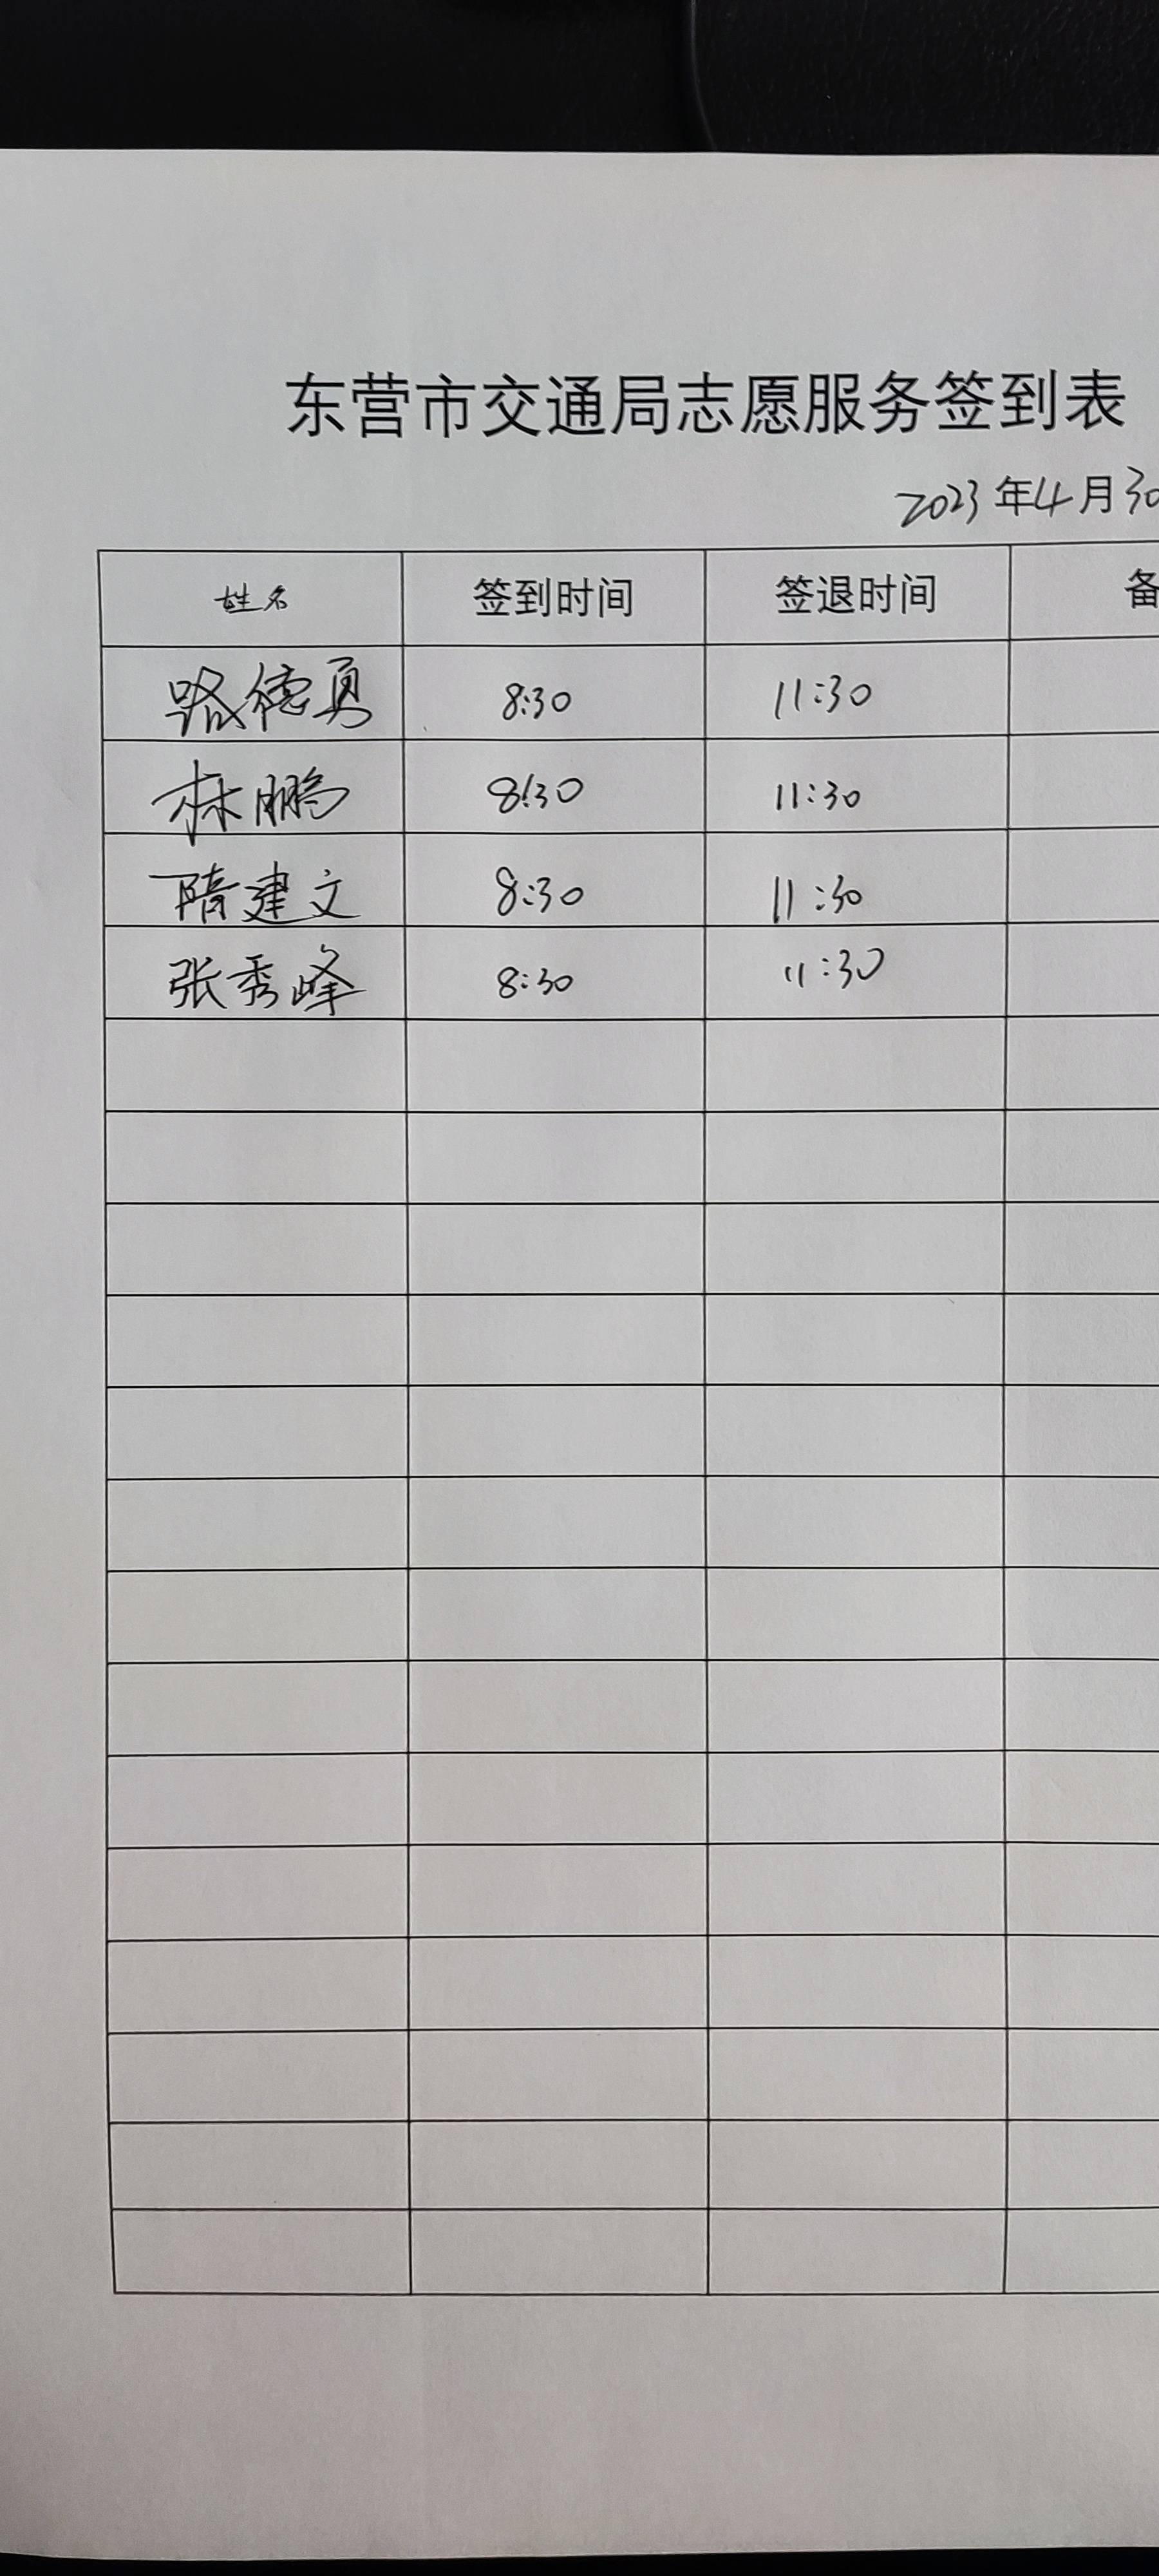 东营市交通局志愿服务签到表
2023年4月30
姓名 签到时间 签退时间 备
路德勇 8:30 11:30
林鹏 8:30 11:30
隋建文 8:30 11:30
张秀峰 8:30 11:30